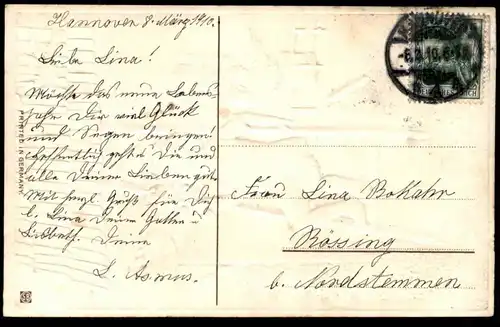 Hannover 8. März 1910.
Liebe Lina!
Möchte das neue Lebens-
jahr Dir viel Glück
und Segen bringen!
Hoffentlich geht es Dir und
alle Deinen Lieben gut.
Mit herzl. Gruß für Dich
l. Lina Deinen Gatten u.
Lisbeth. Deine
L. Asmus.
PRINTED IN GERMANY
Frau Lina Bokahr
Rössing
b. Nordstemmen